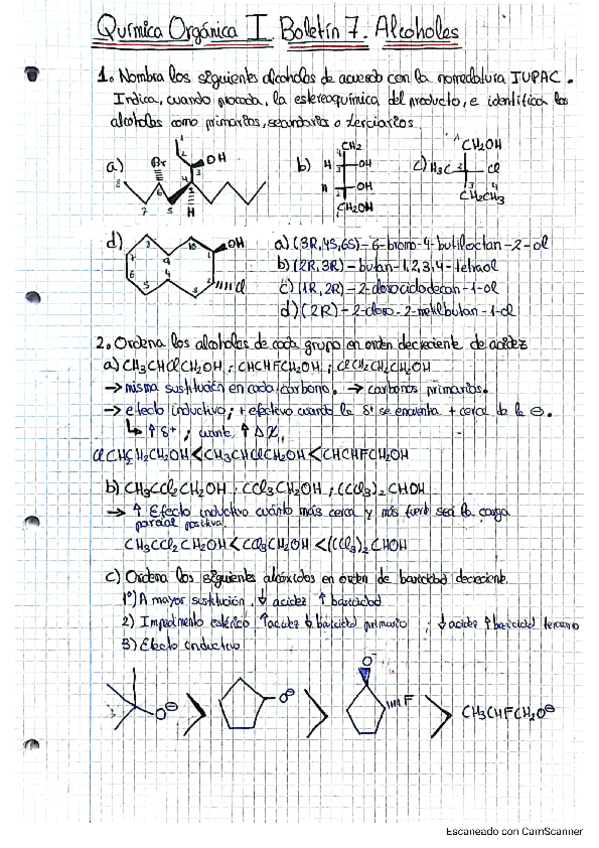 Química Orgánica I. Boletín 7. Alcoholes
1. Nombra los siguientes alcoholes de acuerdo con la nomenclatura IUPAC.
Indica, cuando proceda, la estereoquímica del producto, e identifica los
alcoholes como primarios, secundarios o terciarios
a) Br OH H 1 2 3 4 5 6 7 8
b) CH2 H OH H OH CH2OH
c) CH2OH H3C 2 Cl 3 4 CH2CH3
d) OH Cl 10 1 2 3 4 5 6
a) (3R,4S,6S)-6-bromo-4-butiloctan-2-ol
b) (2R,3R)-butan-1,2,3,4-tetraol
c) (1R,2R)-2-clorociclodecan-1-ol
d) (2R)-2-cloro-2-metilbutan-1-ol
2. Ordena los alcoholes de cada grupo en orden decreciente de acidez
a) CH3CHClCH2OH ; CHCHFCH2OH ; ClCH2CH2CH2OH
→ misma sustitución en cada carbono. → carbonos primarios.
→ efecto inductivo; + efectivo cuando la δ+ se encuentra + cerca de la ⊖.
↳ ↑ δ+ ; cuanto ↑ Δ X,
ClCH2CH2CH2OH < CH3CHClCH2OH < CHCHFCH2OH
b) CH3CCl2CH2OH ; CCl3CH2OH ; (CCl3)2CHOH
→ ↑ Efecto inductivo cuánto más cerca y más fuerte sea la carga
parcial positiva.
CH3CCl2CH2OH < CCl3CH2OH < (CCl3)2CHOH
c) Ordena los siguientes alcóxidos en orden de basicidad decreciente.
1º) A mayor sustitución, ↓ acidez ↑ basicidad
2) Impedimento estérico ↑ acidez ↓ basicidad primario ; ↓ acidez ↑ basicidad terciario
3) Efecto inductivo
O⊖ > O⊖ > O- F > CH3CHFCH2O⊖
Escaneado con CamScanner